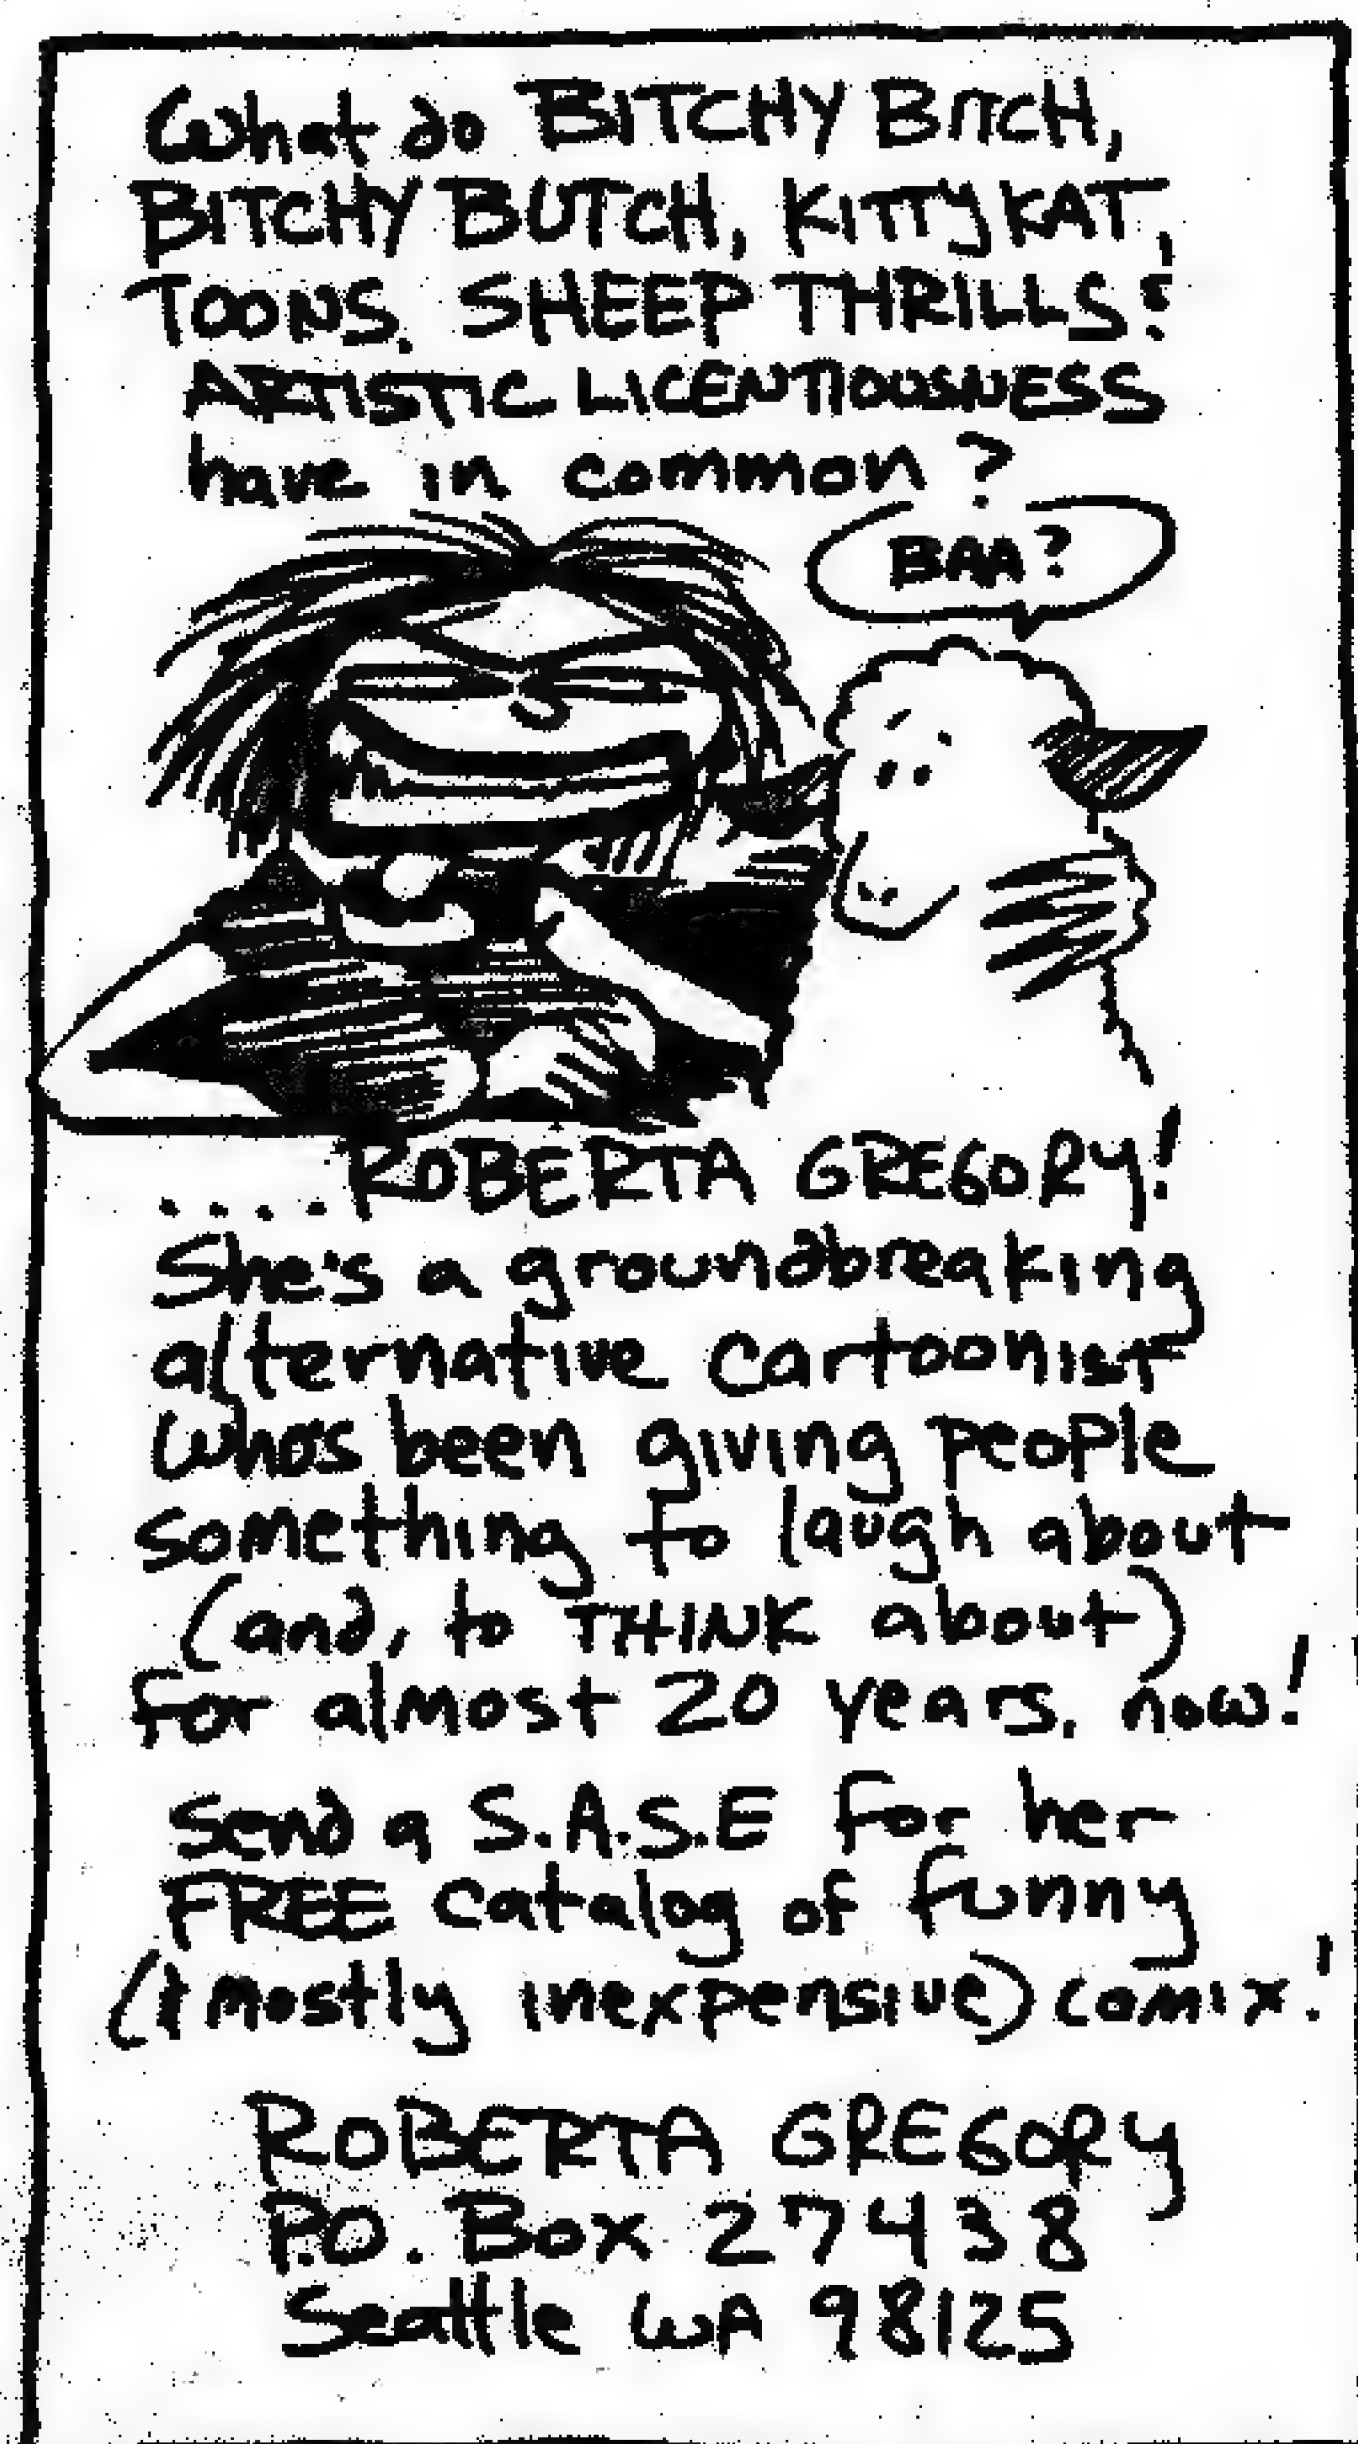 What do BITCHY BITCH,
BITCHY BUTCH, KITTY KAT,
TOONS, SHEEP THRILLS &
ARTISTIC LICENTIOUSNESS
have in common?
BAA?
....ROBERTA GREGORY!
She's a groundbreaking
alternative cartoonist
who's been giving people
something to laugh about
(and, to THINK about)
for almost 20 years, now!
Send a S.A.S.E for her
FREE catalog of funny
(& mostly inexpensive) comix!
ROBERTA GREGORY
P.O. Box 27438
Seattle WA 98125